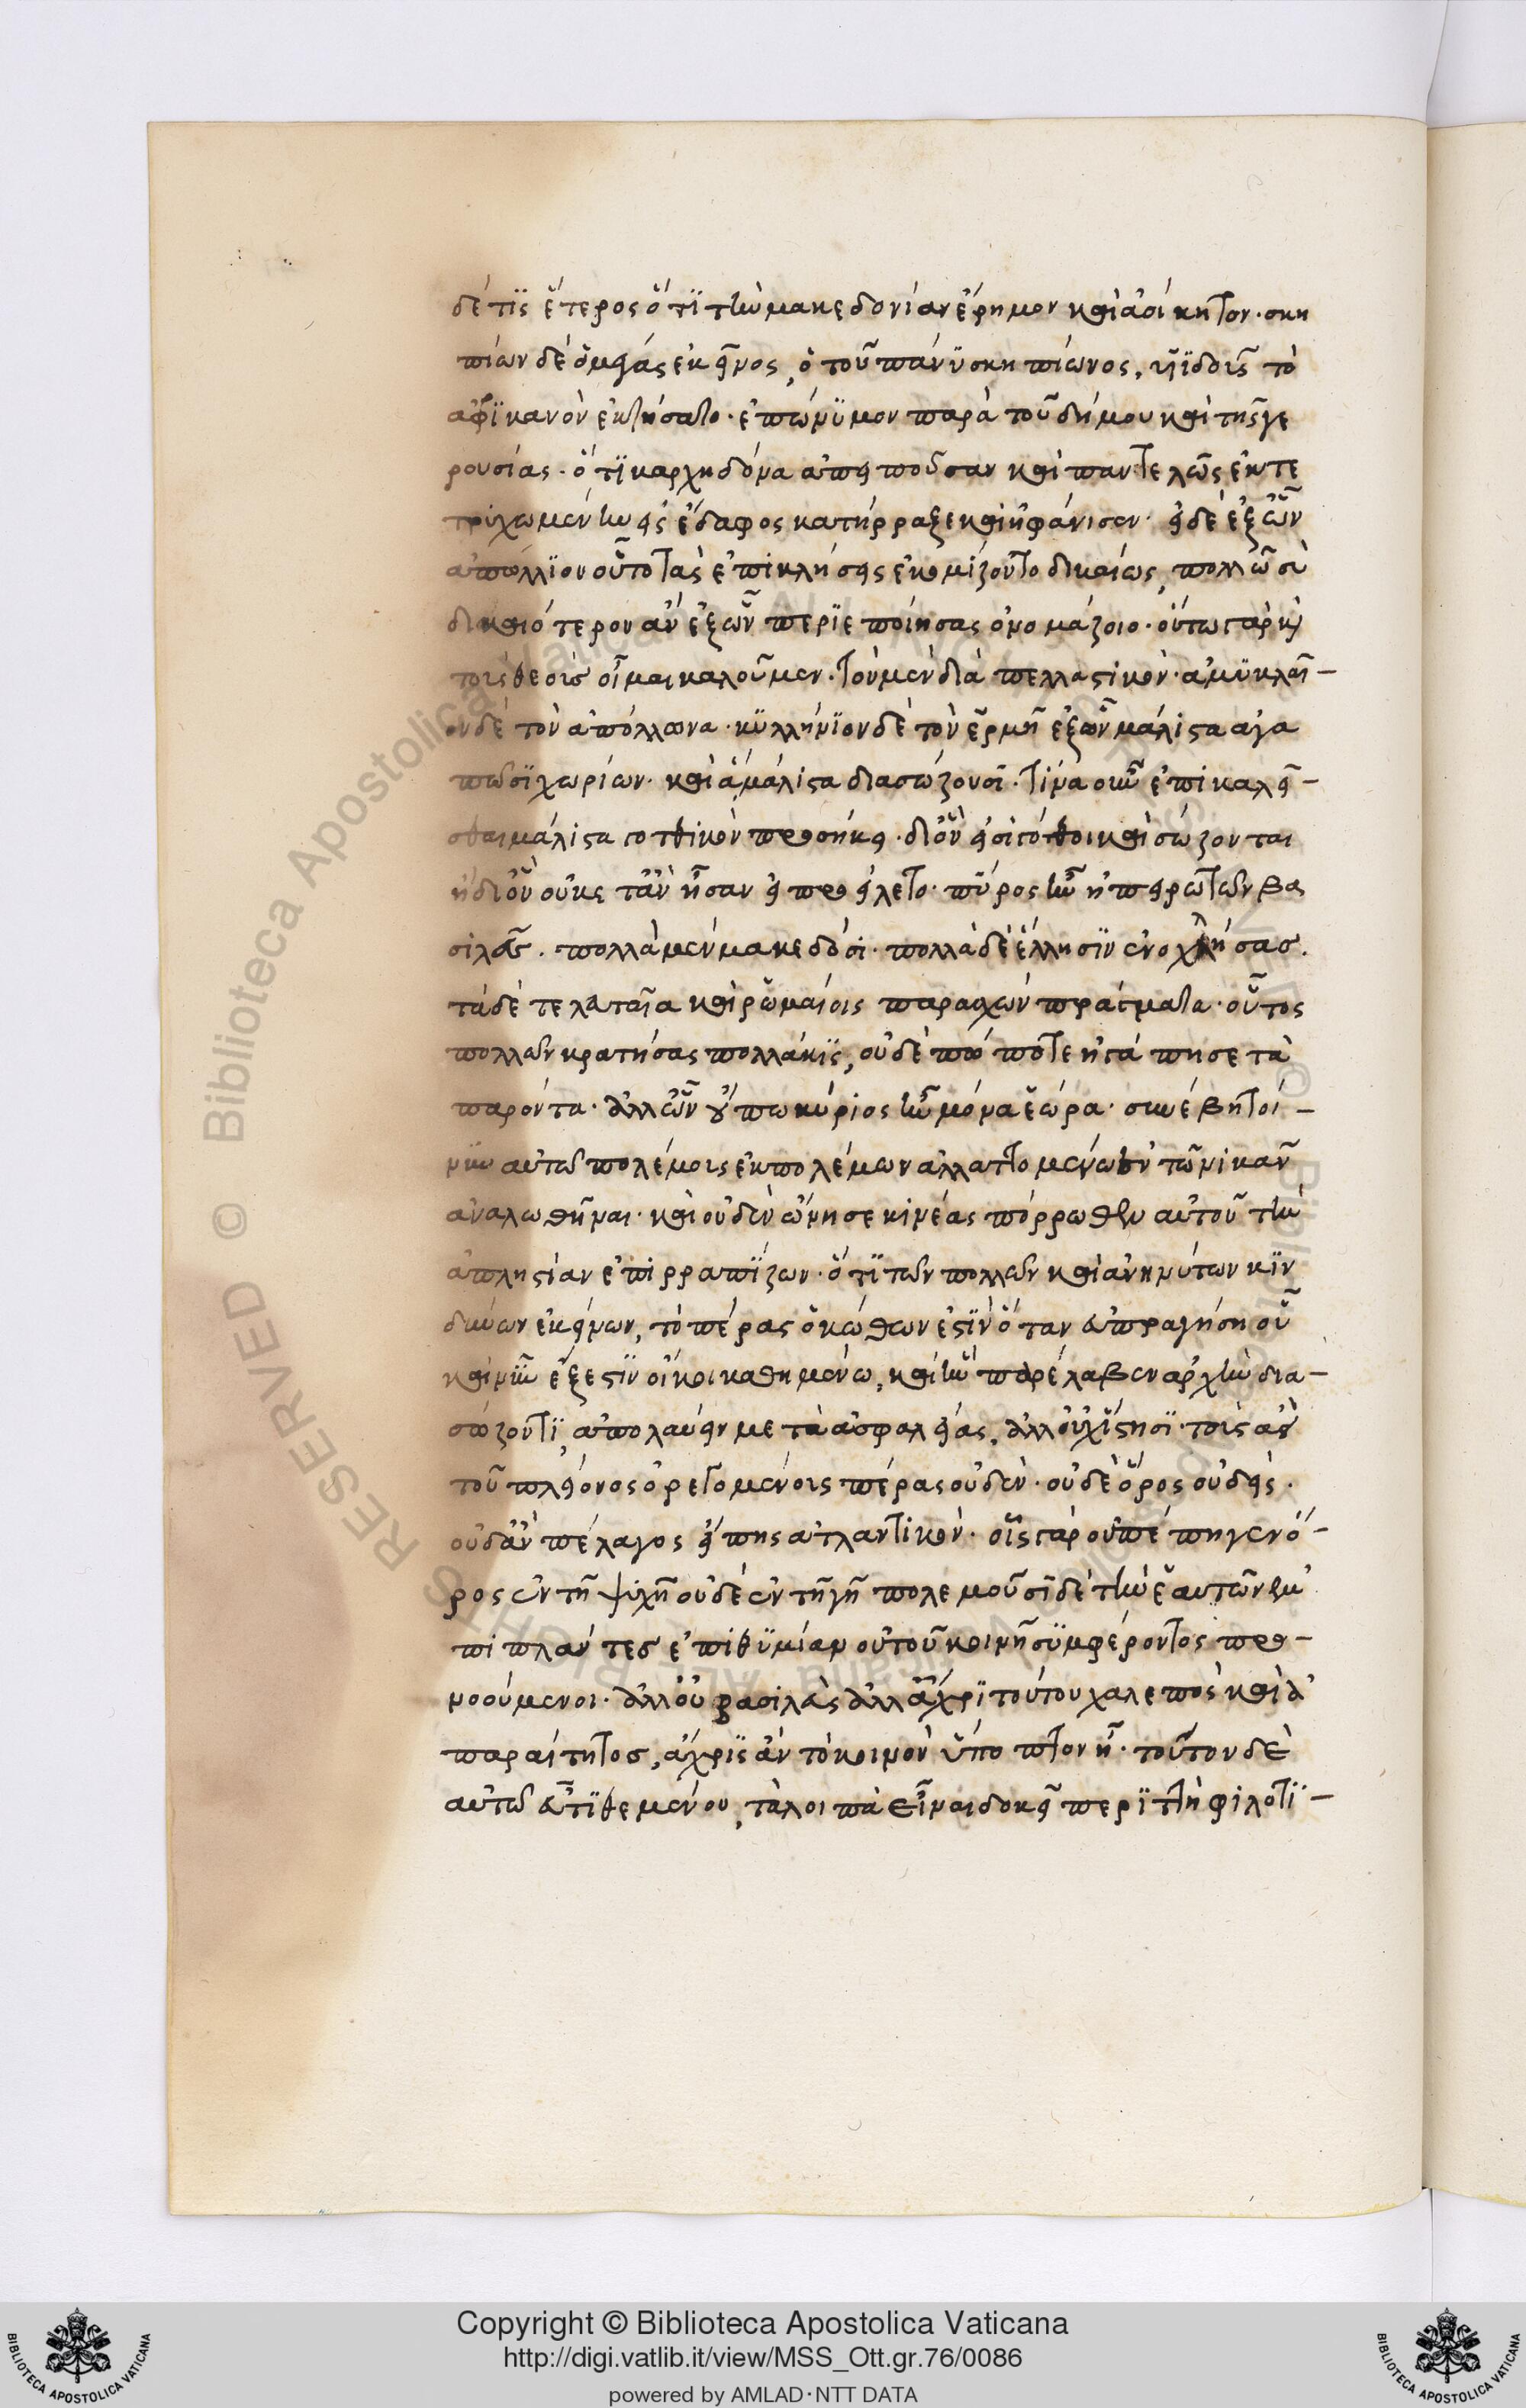 δέ τϊς ἕτερος ὅτϊ τὴν μακεδονίαν ἔρημον καὶ ἀοίκητον· σκη
πίων δὲ ὁ μέγας ἐκεῖνος, ὁ τοῦ πάνϋ σκηπίωνος, ϋἱϊδοῖς τὸ
ἀφϊκανὸν ἐκτήσατο· ἐπώνϋμον παρὰ τοῦ δήμου καὶ τῆς γε
ρουσίας· ὅτϊ καρχηδόνα ἀπειποῦσαν καὶ παντελῶς ἐκτε
τρϋχωμένην εἰς ἔδαφος κατήρραξε καὶ ἠφάνισεν· εἰ δὲ ἐξ ὧν
ἀπόλλϊον οὗτοι τὰς ἐπικλήσεις ἐκομίζοντο δικαίως, πολλῶ σὺ
δικαιότερον ἂν ἐξ ὧν περϊεποίησας ὀνομάζοιο· οὕτω γὰρ καὶ
τοῖς θεοῖς οἶμαι καλοῦμεν· τὸν μὲν δία πελλαστικὸν· ἀμϋκλαῖ-
ον δὲ τὸν ἀπόλλωνα· κϋλλήνϊον δὲ τὸν ἑρμῆ ἐξ ὧν μάλιστα ἀγα
πῶσϊ χωρίων· καὶ ἃ μάλιστα διασώζουσϊ· τίνα οὖν ἐπικαλεῖ-
σθαι μάλιστα γοτθικὸν προσήκει· δι' ὃν εἰσὶ γότθοι καὶ σώζονται
ἢ δι' ὃν οὐκέτ' ἂν ἦσαν εἰ προείλετο· πύρος ἦν ἠπειρωτῶν βα
σιλεὺς· πολλὰ μὲν μακεδόσι· πολλὰ δὲ ἕλλησϊν ἐνοχλήσας·
τὰ δὲ τελευταῖα καὶ ῥωμαίοις παρασχὼν πράγματα· οὗτος
πολλῶν κρατήσας πολλάκϊς, οὐδὲ πώποτε ἠγάπησε τὰ
παρόντα· ἀλλ' ὧν οὔπω κύριος ἦν μόνα ἑώρα· συνέβη τοί-
νϋν αὐτῶ πολέμοις ἐκ πολέμων ἀλλαττομένω ἐν τῶ νικᾶν
ἀναλωθῆναι· καὶ οὐδὲν ὤνησε κινέας πόρρωθεν αὐτοῦ τὴν
ἀπληστίαν ἐπιρραπϊζων· ὅτϊ τῶν πολλῶν καὶ ἀνηνύτων κϊν
δύνων ἐκείνων, τὸ πέρας ὁ κώθων ἐστϊν ὅταν εὐπραγήση οὗ
καὶ νῦν ἔξεστϊν οἴκοι καθημένω, καὶ ἣν παρέλαβεν ἀρχὴν δια-
σώζοντϊ, ἀπολαύειν μετὰ ἀσφαλείας, ἀλλ' οὐχ ἵστησϊ· τοῖς ἀεὶ
τοῦ πλείονος ὀρεγομένοις πέρας οὐδὲν· οὐδὲ ὅρος οὐδείς·
οὐδ' ἂν πέλαγος εἴπης ἀτλαντικὸν· οἷς γὰρ οὐ πέπηγεν ὅ-
ρος ἐν τῆ ψυχῆ οὐδὲ ἐν τῆ γῆ πολεμοῦσϊ δὲ τὴν ἑαυτῶν ἐμ
πιπλάντες ἐπιθϋμίαν οὐ τοῦ κοινῆ συμφέροντος προ-
νοούμενοι· ἀλλ' οὐ βασιλεὺς ἀλλ' ἄχρϊ τούτου χαλεπὸς καὶ ἀ
παραίτητος, ἄχρϊς ἂν τὸ κοινὸν ὕποπτον ἦ· τούτου δὲ
αὐτῶ εὖ τϊθεμένου, τὰ λοιπὰ εἶναι δοκεῖ περϊ τὴν φιλοτϊ-
Copyright © Biblioteca Apostolica Vaticana
http://digi.vatlib.it/view/MSS_Ott.gr.76/0086
powered by AMLAD·NTT DATA